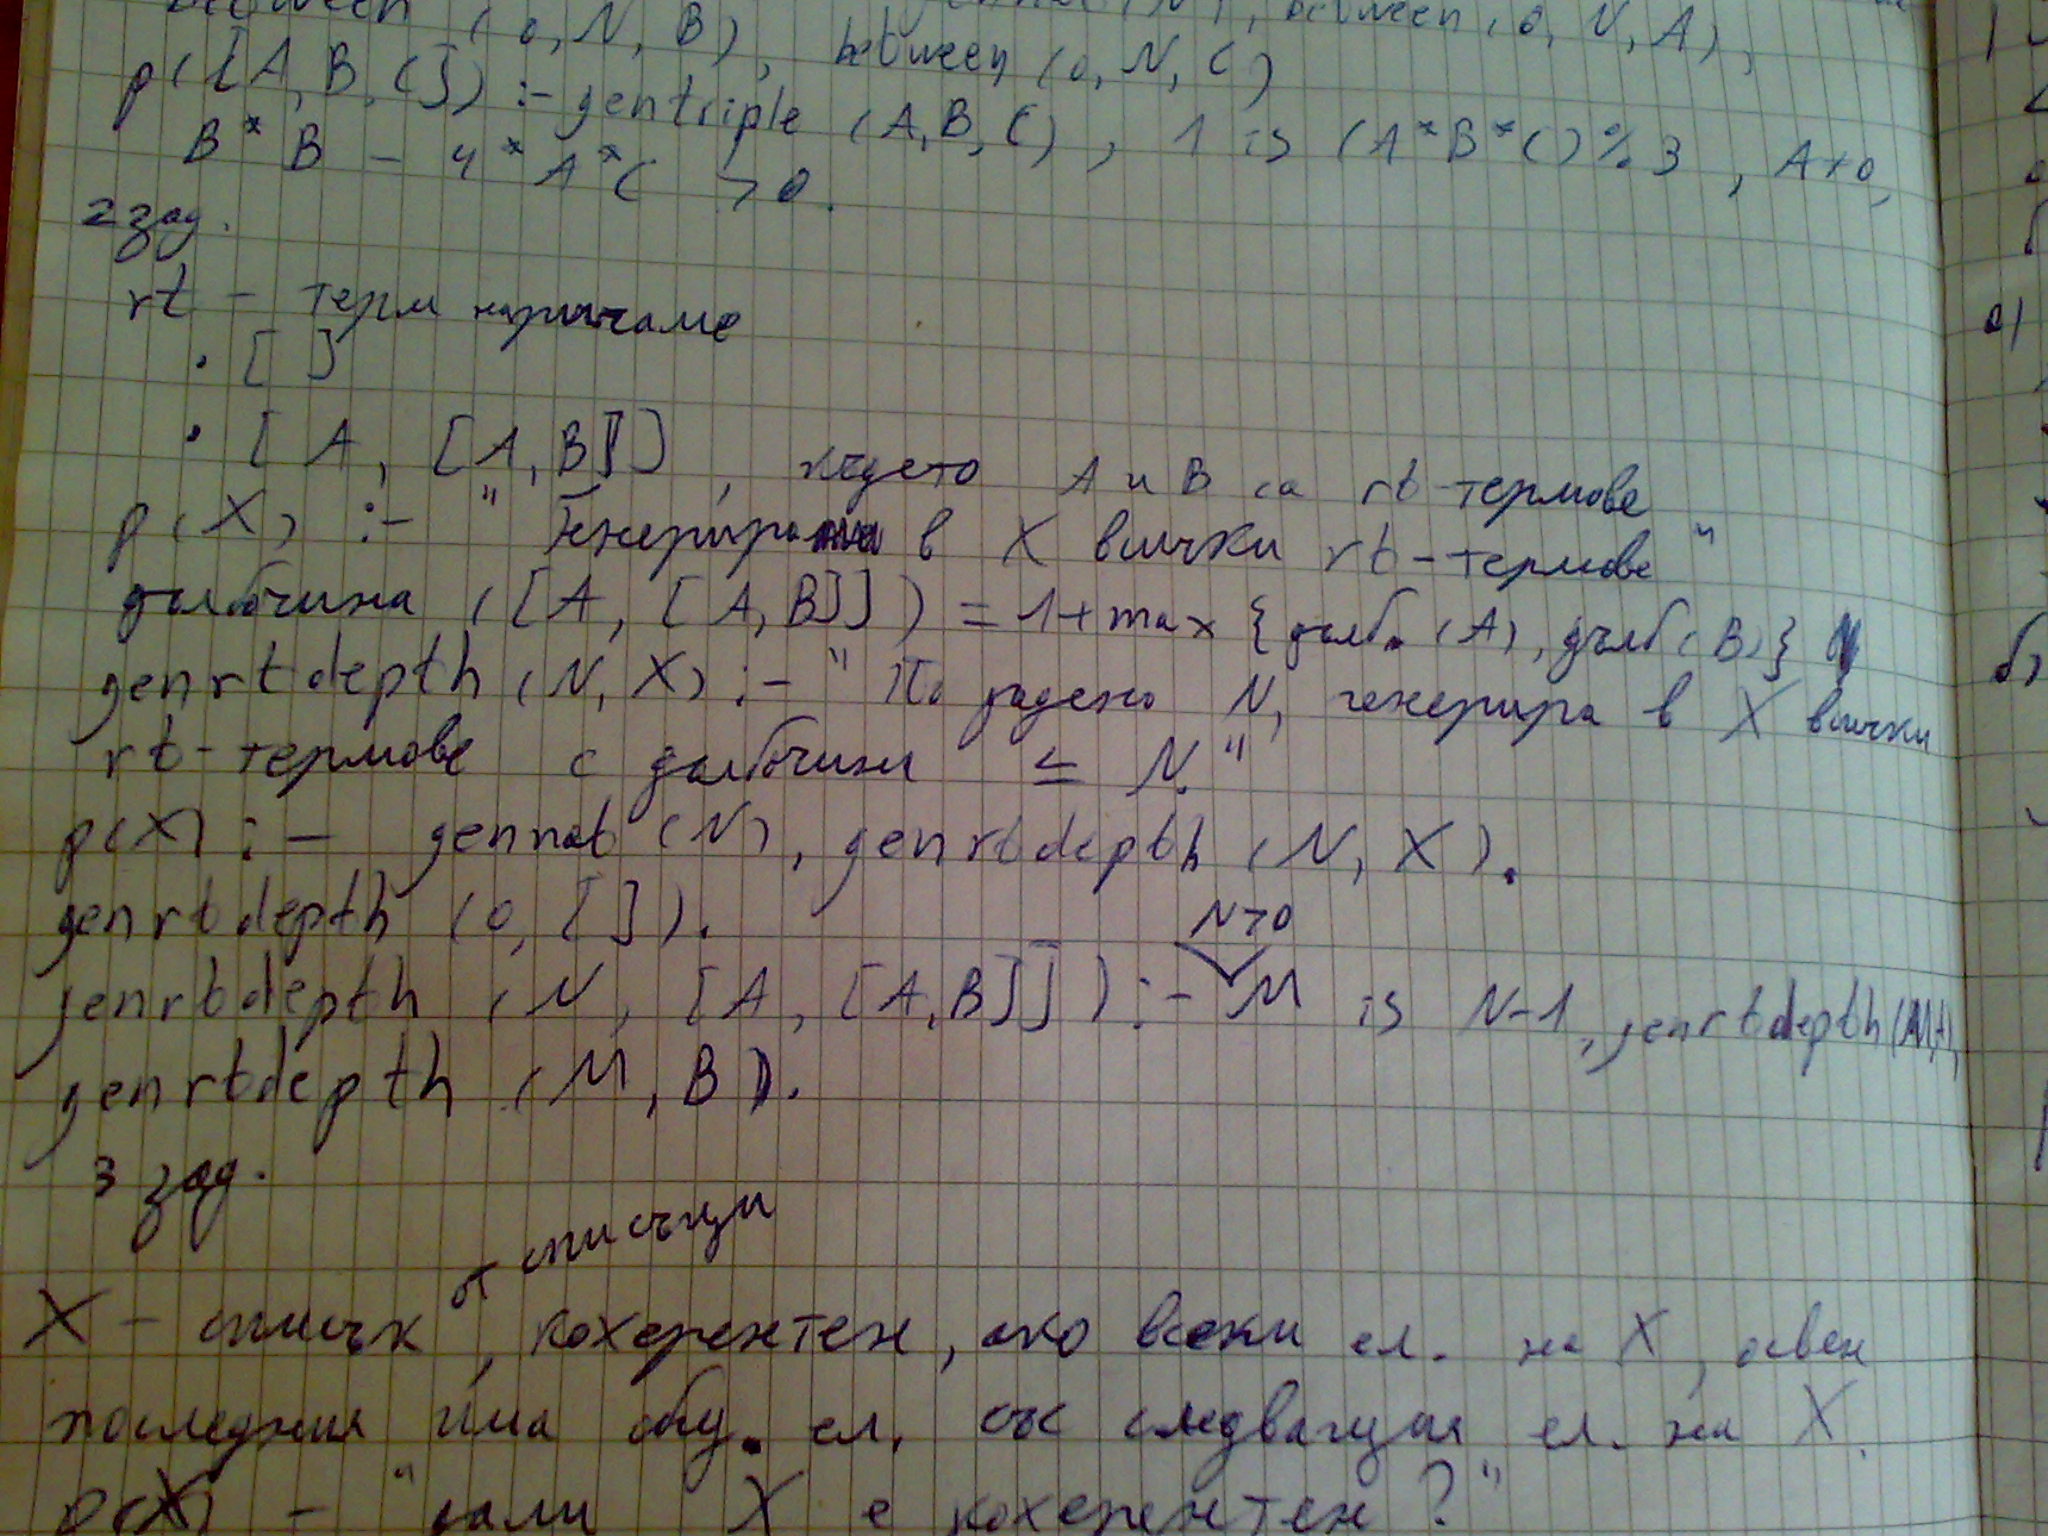 between (0, N, B), between (0, N, C) between (0, N, A),
p([A, B, C]) :- gentriple (A, B, C), 1 is (A*B*C)%3, A≠0,
B*B - 4*A*C >0.
2 зад.
rt - терм наричаме
• [ ]
• [A, [A, B]], където A и B са rt-термове
p(X) :- "Генерира в X всички rt-термове"
дълбочина ([A, [A, B]]) = 1+max {дълб. (A), дълб (B)}
genrtdepth (N, X) :- "По дадено N, генерира в X всички
rt-термове с дълбочина ≤ N."
p(X) :- gennat (N), genrtdepth (N, X).
genrtdepth (0, []).
N>0
genrtdepth (N, [A, [A, B]]) :- M is N-1, genrtdepth (M, A),
genrtdepth (M, B).
3 зад.
от списъци
X - списък, кохерентен, ако всеки ел. на X, освен
последния има общ. ел. със следващия ел. на X.
p(X) - "дали X е кохерентен?"